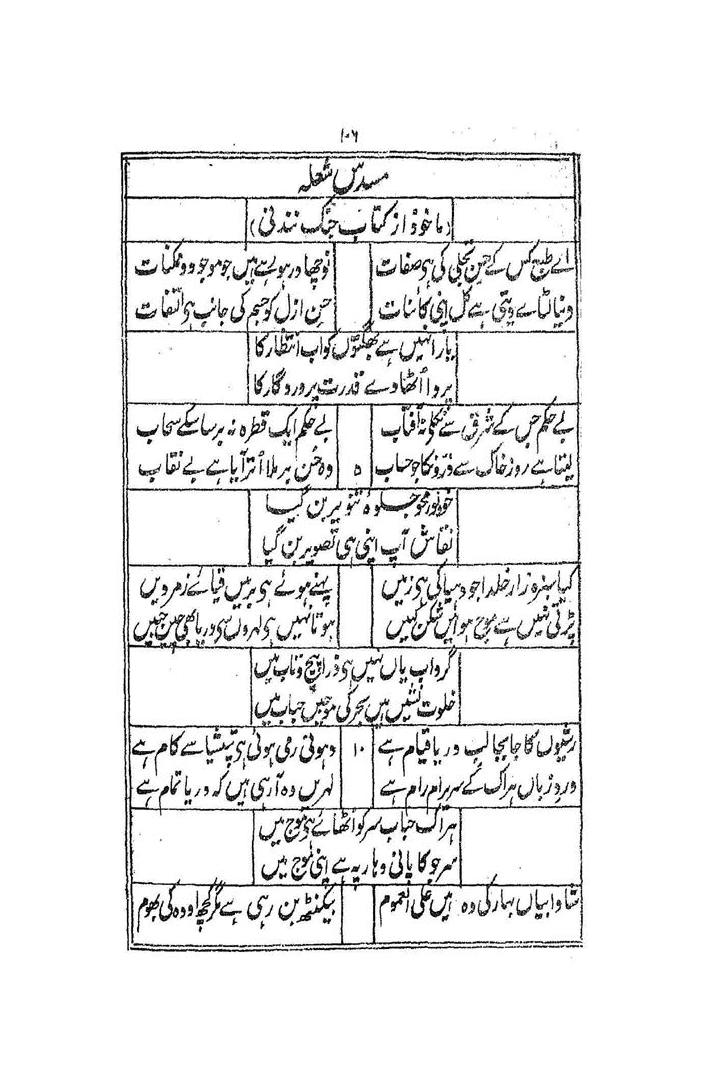 ۱۰۶
مسدس شعلہ
(ماخوذ از کتاب جگ نندنی)
اے طبع کس کے حسن تجلی کی ہی صفات نوچھاور ہو رہے ہیں جو موجود و ممکنات
دنیا لٹائے دیتی ہے کل اپنی کائنات حسن ازل کو جسم کی جانب ہی التفات
یارا نہیں ہے بھگتوں کو اب انتظار کا
پردا اُٹھا دے قدرت پروردگار کا
بے حکم جس کے شرق سے نکلے نہ آفتاب بے حکم ایک قطرہ نہ برسا سکے سحاب
لیتا ہے روز خاک سے ذروں کا جو حساب ۵ وہ حُسن برملا اُتر آیا ہے بے نقاب
خود نور محو جلوۂ تنویر بن گیا
نقاش آپ اپنی ہی تصویر بن گیا
کیا سبزہ زار خلد اجودھیا کی ہی زمیں پہنے ہوئے ہی بر میں قبائے زمردیں
پڑتی نہیں ہے موج ہوا میں شکن کہیں ہوتا نہیں ہی لہروں سی دریا بھی چیں جبیں
گرداب یاں نہیں ہی ذرا پیچ و تاب میں
خلوت نشیں ہیں بحر کی موجیں حباب میں
رشیوں کا جابجا لب دریا قیام ہے ۱۰ دھونی رمی ہوئی ہی تپشیا سے کام ہے
ورد زباں ہر اک کے سری رام رام ہے لہریں وہ آ رہی ہیں کہ دریا تمام ہے
ہر اک حباب سر کو اُٹھائے ہی موج میں
سرجو کا پانی دھار پہ ہے اپنی موج میں
شادابیاں بہار کی وہ ہیں علی العموم بیکنٹھ بن رہی ہے مگر کچھ اودہ کی بھوم